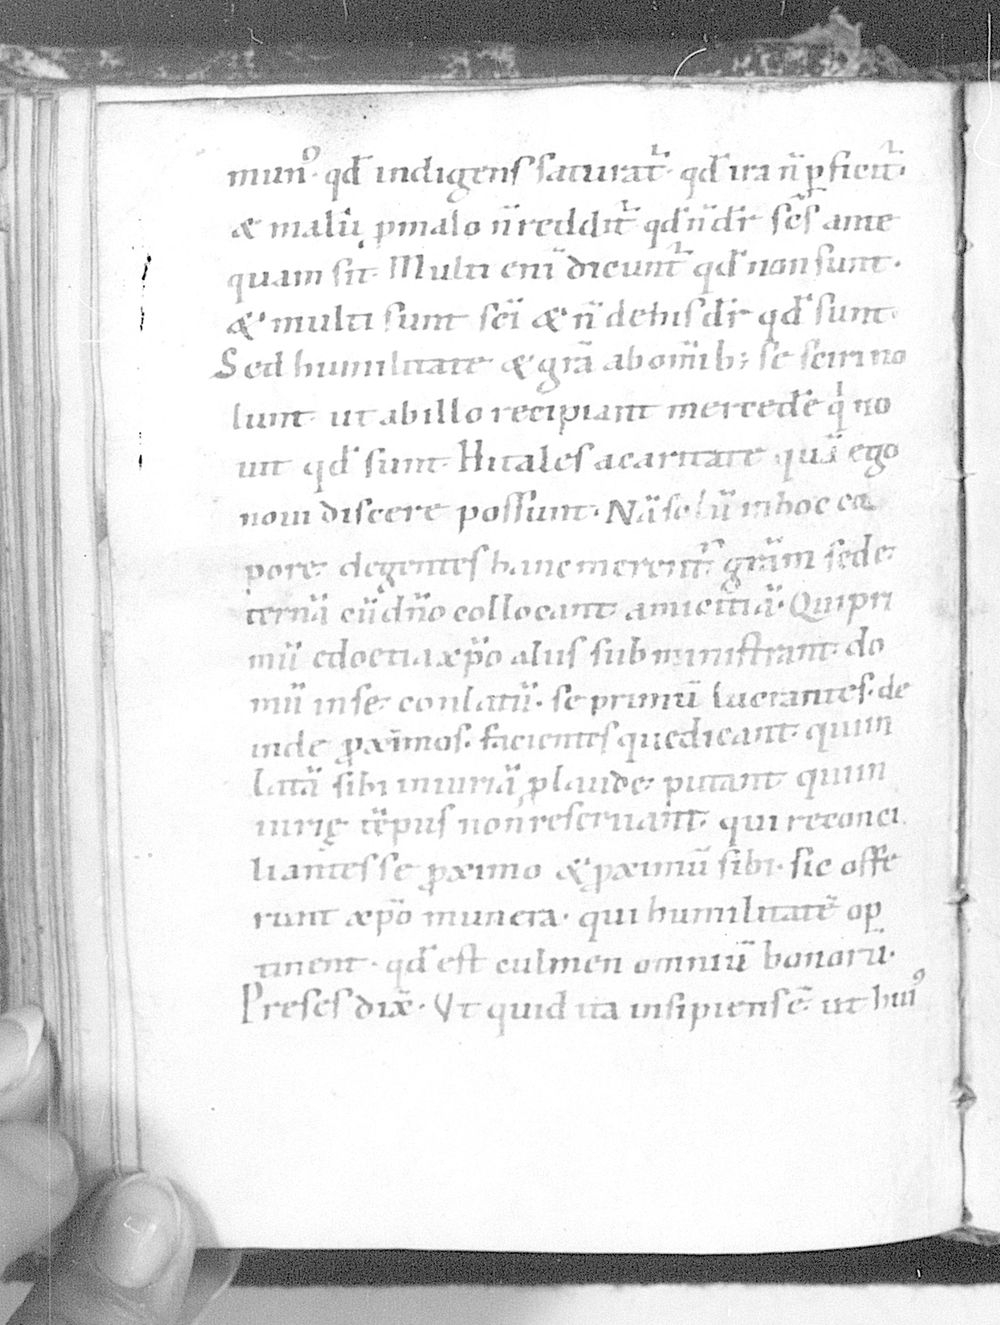 munꝰ· qđ indigens saturat᷑· qđ ira n̄ ꝑficit᷑·
& malū ꝑ malo n̄ reddit᷑ qđ n̄ dr̄ sc̄s ante
quam sit· Multi eni̅ dicunt᷑ qđ non sunt·
& multi sunt sc̄i & n̄ de his dr̄ qđ sunt·
Sed humilitate & grā ab om̄ib; se sciri no
lunt· ut ab illo recipiant mercedē q̇ no
uit qđ sunt· Hi tales a caritate quā ego
noui discere possunt· Nā solū in hoc cor
pore degentes hanc merent᷑ grām sed e
ternā cū dn̄o collocant amicitiā· Qui pri
mū edocti a xp̄o aliis subministrant· do
nū in se conlatū· se primū lucrantes· de
inde ꝓximos· facientes que dicant· qui in
latā sibi iniuriā plaude putant qui in
iurię tēpus non reseruant· qui reconci
liantes se ꝓximo & ꝓximū sibi· sic offe
runt xp̄o munera· qui humilitatē op
tinent· qđ est culmen omniū bonorū·
Preses dix̄· Ut quid ita insipiens ē ut huiꝰ